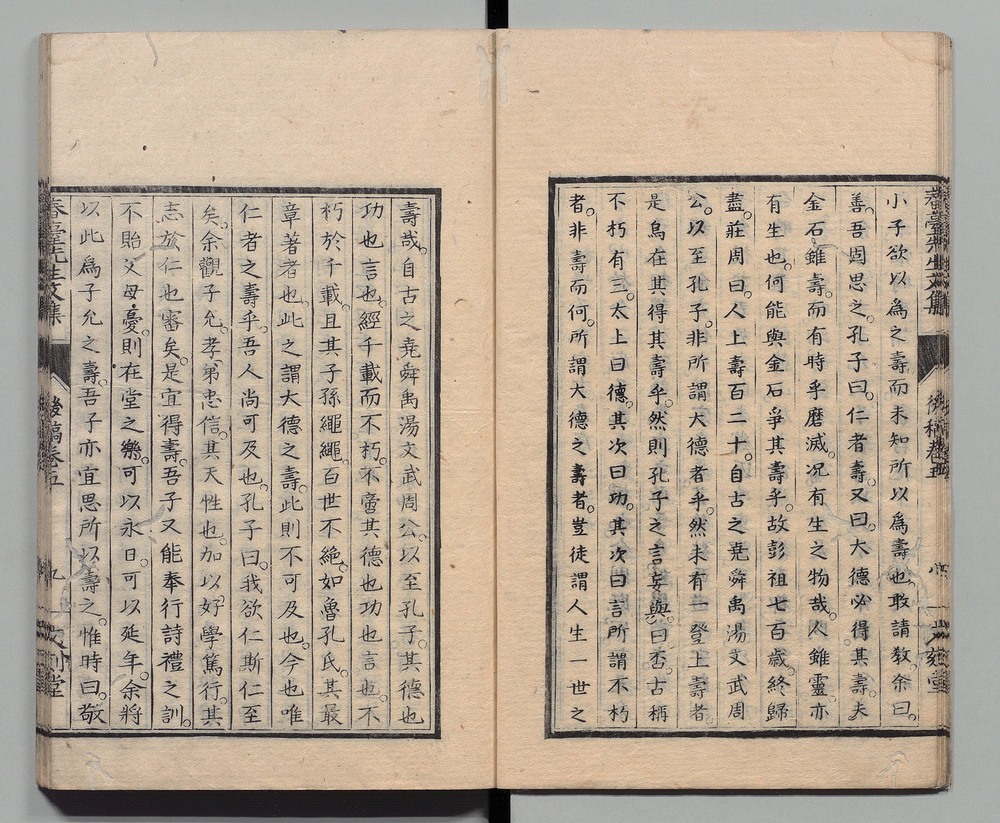 小子欲以為之壽而未知所以爲壽也。敢請教。余曰。
善。吾固思之。孔子曰。仁者壽。又曰。大德必得其壽。夫
金石雖壽。而有時乎磨滅。况有生之物哉。人雖靈。亦
有生也。何能與金石爭其壽乎。故彭祖七百歲。終歸
盡。莊周曰。人上壽百二十。自古之堯舜禹湯文武周
公。以至孔子。非所謂大德者乎。然未有一登上壽者。
是烏在其得其壽乎。然則孔子之言妄與。曰否。古稱
不朽有三。太上曰德。其次曰功。其次曰言。所謂不朽
者。非壽而何。所謂大德之壽者。豈徒謂人生一世之
壽哉。自古之堯舜禹湯文武周公。以至孔子。其德也
功也言也。經千載而不朽。不啻其德也功也言也。不
朽於千載。且其子孫繩繩。百世不絶。如魯孔氏。其最
章著者也。此之謂大德之壽。此則不可及也。今也唯
仁者之壽乎。吾人尚可及也。孔子曰。我欲仁斯仁至
矣。余觀子允。孝弟忠信。其天性也。加以好學篤行。其
志於仁也審矣。是宜得壽。吾子又能奉行詩禮之訓。
不貽父母憂。則在堂之樂。可以永日。可以延年。余將
以此爲子允之壽。吾子亦宜思所以壽之。惟時曰。敬
春臺先生文集
後稿卷五
九